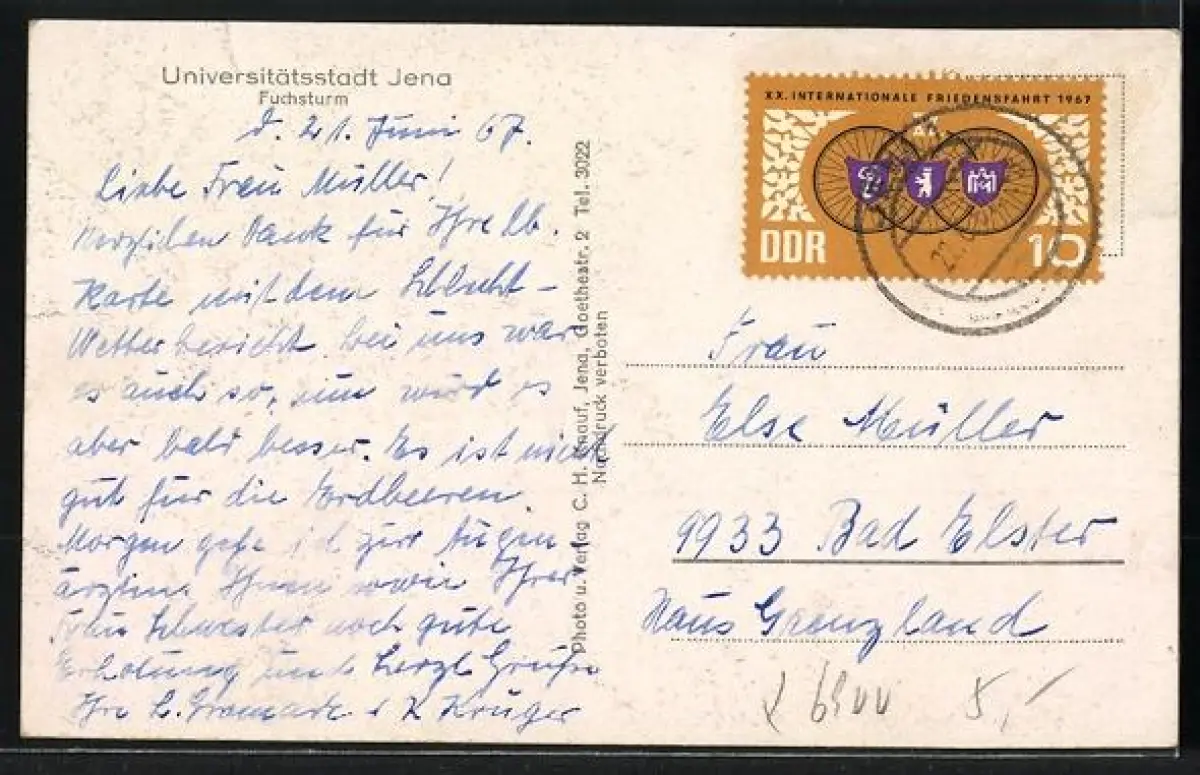 Universitätsstadt Jena
Fuchsturm
d. 21. Juni 67.
Liebe Frau Müller!
Herzlichen Dank für Ihre lb.
Karte mit dem Schlecht-
Wetterbericht. Bei uns war
es auch so, nun wird es
aber bald besser. Es ist nicht
gut für die Erdbeeren.
Morgen gehe ich zur Augen
ärztin. Ihnen sowie Ihrer
Frau Schwester noch gute
Erholung und herzl. Grüße
Ihre L. u. K. Krüger
Photo u. Verlag C. H. Knauf, Jena, Goethestr. 2 Tel. 3022
Nachdruck verboten
XX. INTERNATIONALE FRIEDENSFAHRT 1967
DDR
10
Frau
Else Müller
9933 Bad Elster
Haus Grenzland
5,-